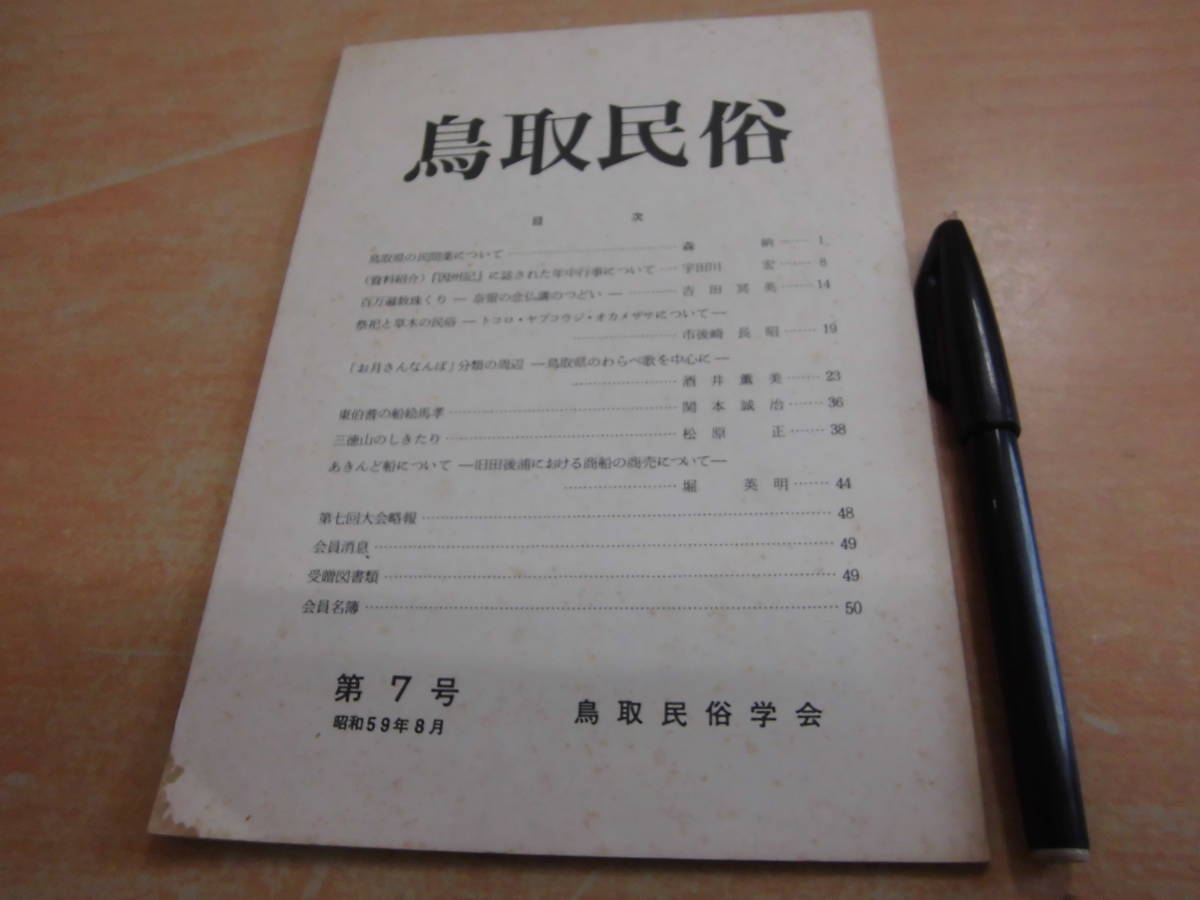 鳥取民俗
目次
鳥取県の民間薬について 森納 1
(資料紹介)『因州記』に誌された年中行事について 宇田川宏 8
百万遍数珠くり ― 奈留の念仏講のつどい ― 吉田冥英 14
祭祀と草木の民俗 ―トコロ・ヤブコウジ・オカメザサについて―
市後崎長昭 19
「お月さんなんぼ」分類の周辺 ―鳥取県のわらべ歌を中心に―
酒井薫美 23
東伯耆の船絵馬孝 関本誠治 36
三徳山のしきたり 松原正 38
あきんど船について ―旧田後浦における商船の商売について―
堀英明 44
第七回大会略報 48
会員消息 49
受贈図書類 49
会員名簿 50
第7号 鳥取民俗学会
昭和59年8月